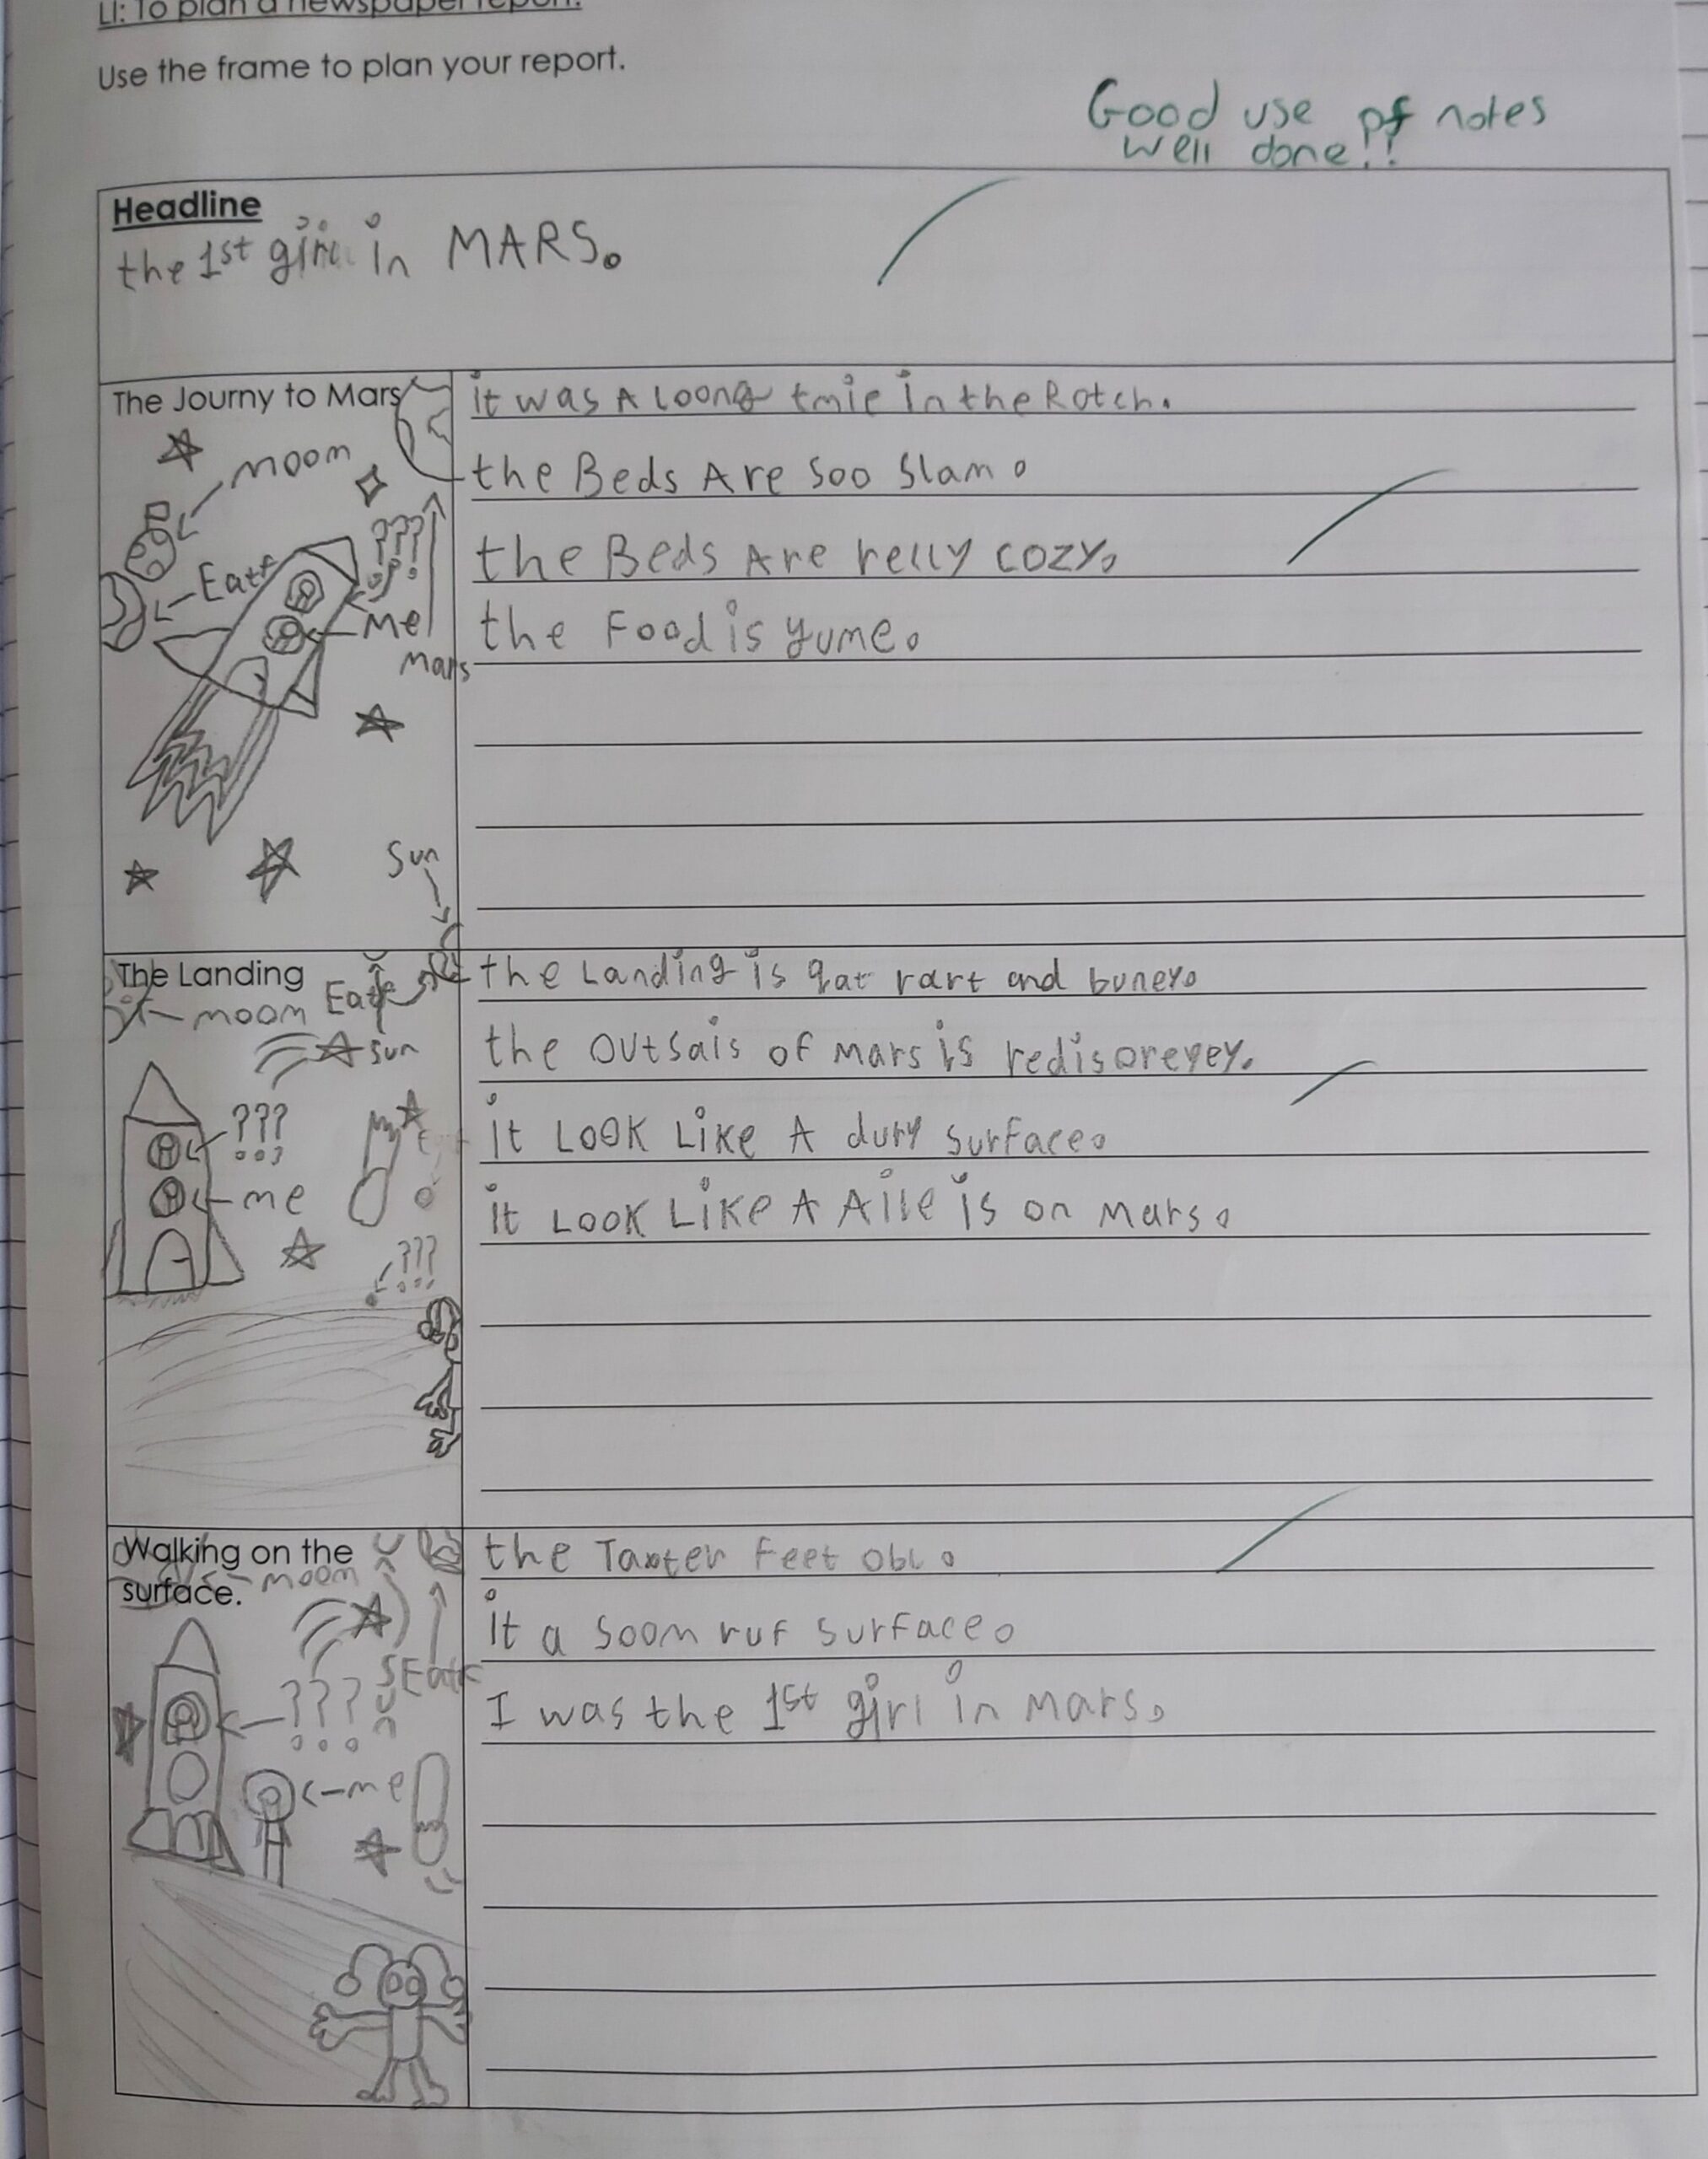 LI: To plan a newspaper report.
Use the frame to plan your report.
Good use of notes
well done!!
Headline
the 1st girl in MARS.
The Journy to Mars
moom
Eatf
???
Me
Mars
Sun
it was A Loong tmie in the Rotch.
the Beds Are soo slam.
the Beds Are relly cozy.
the Food is yume.
The Landing
moom
Eatf
sun
???
me
???
the Landing is qat rart and buney.
the outsais of mars is redisoreyey.
it Look Like A dury surface.
it Look Like A Aile is on Mars.
Walking on the
surface.
moom
Eatf
sun
???
me
the Taxter Feet obl.
it a soom ruf surface.
I was the 1st girl in Mars.